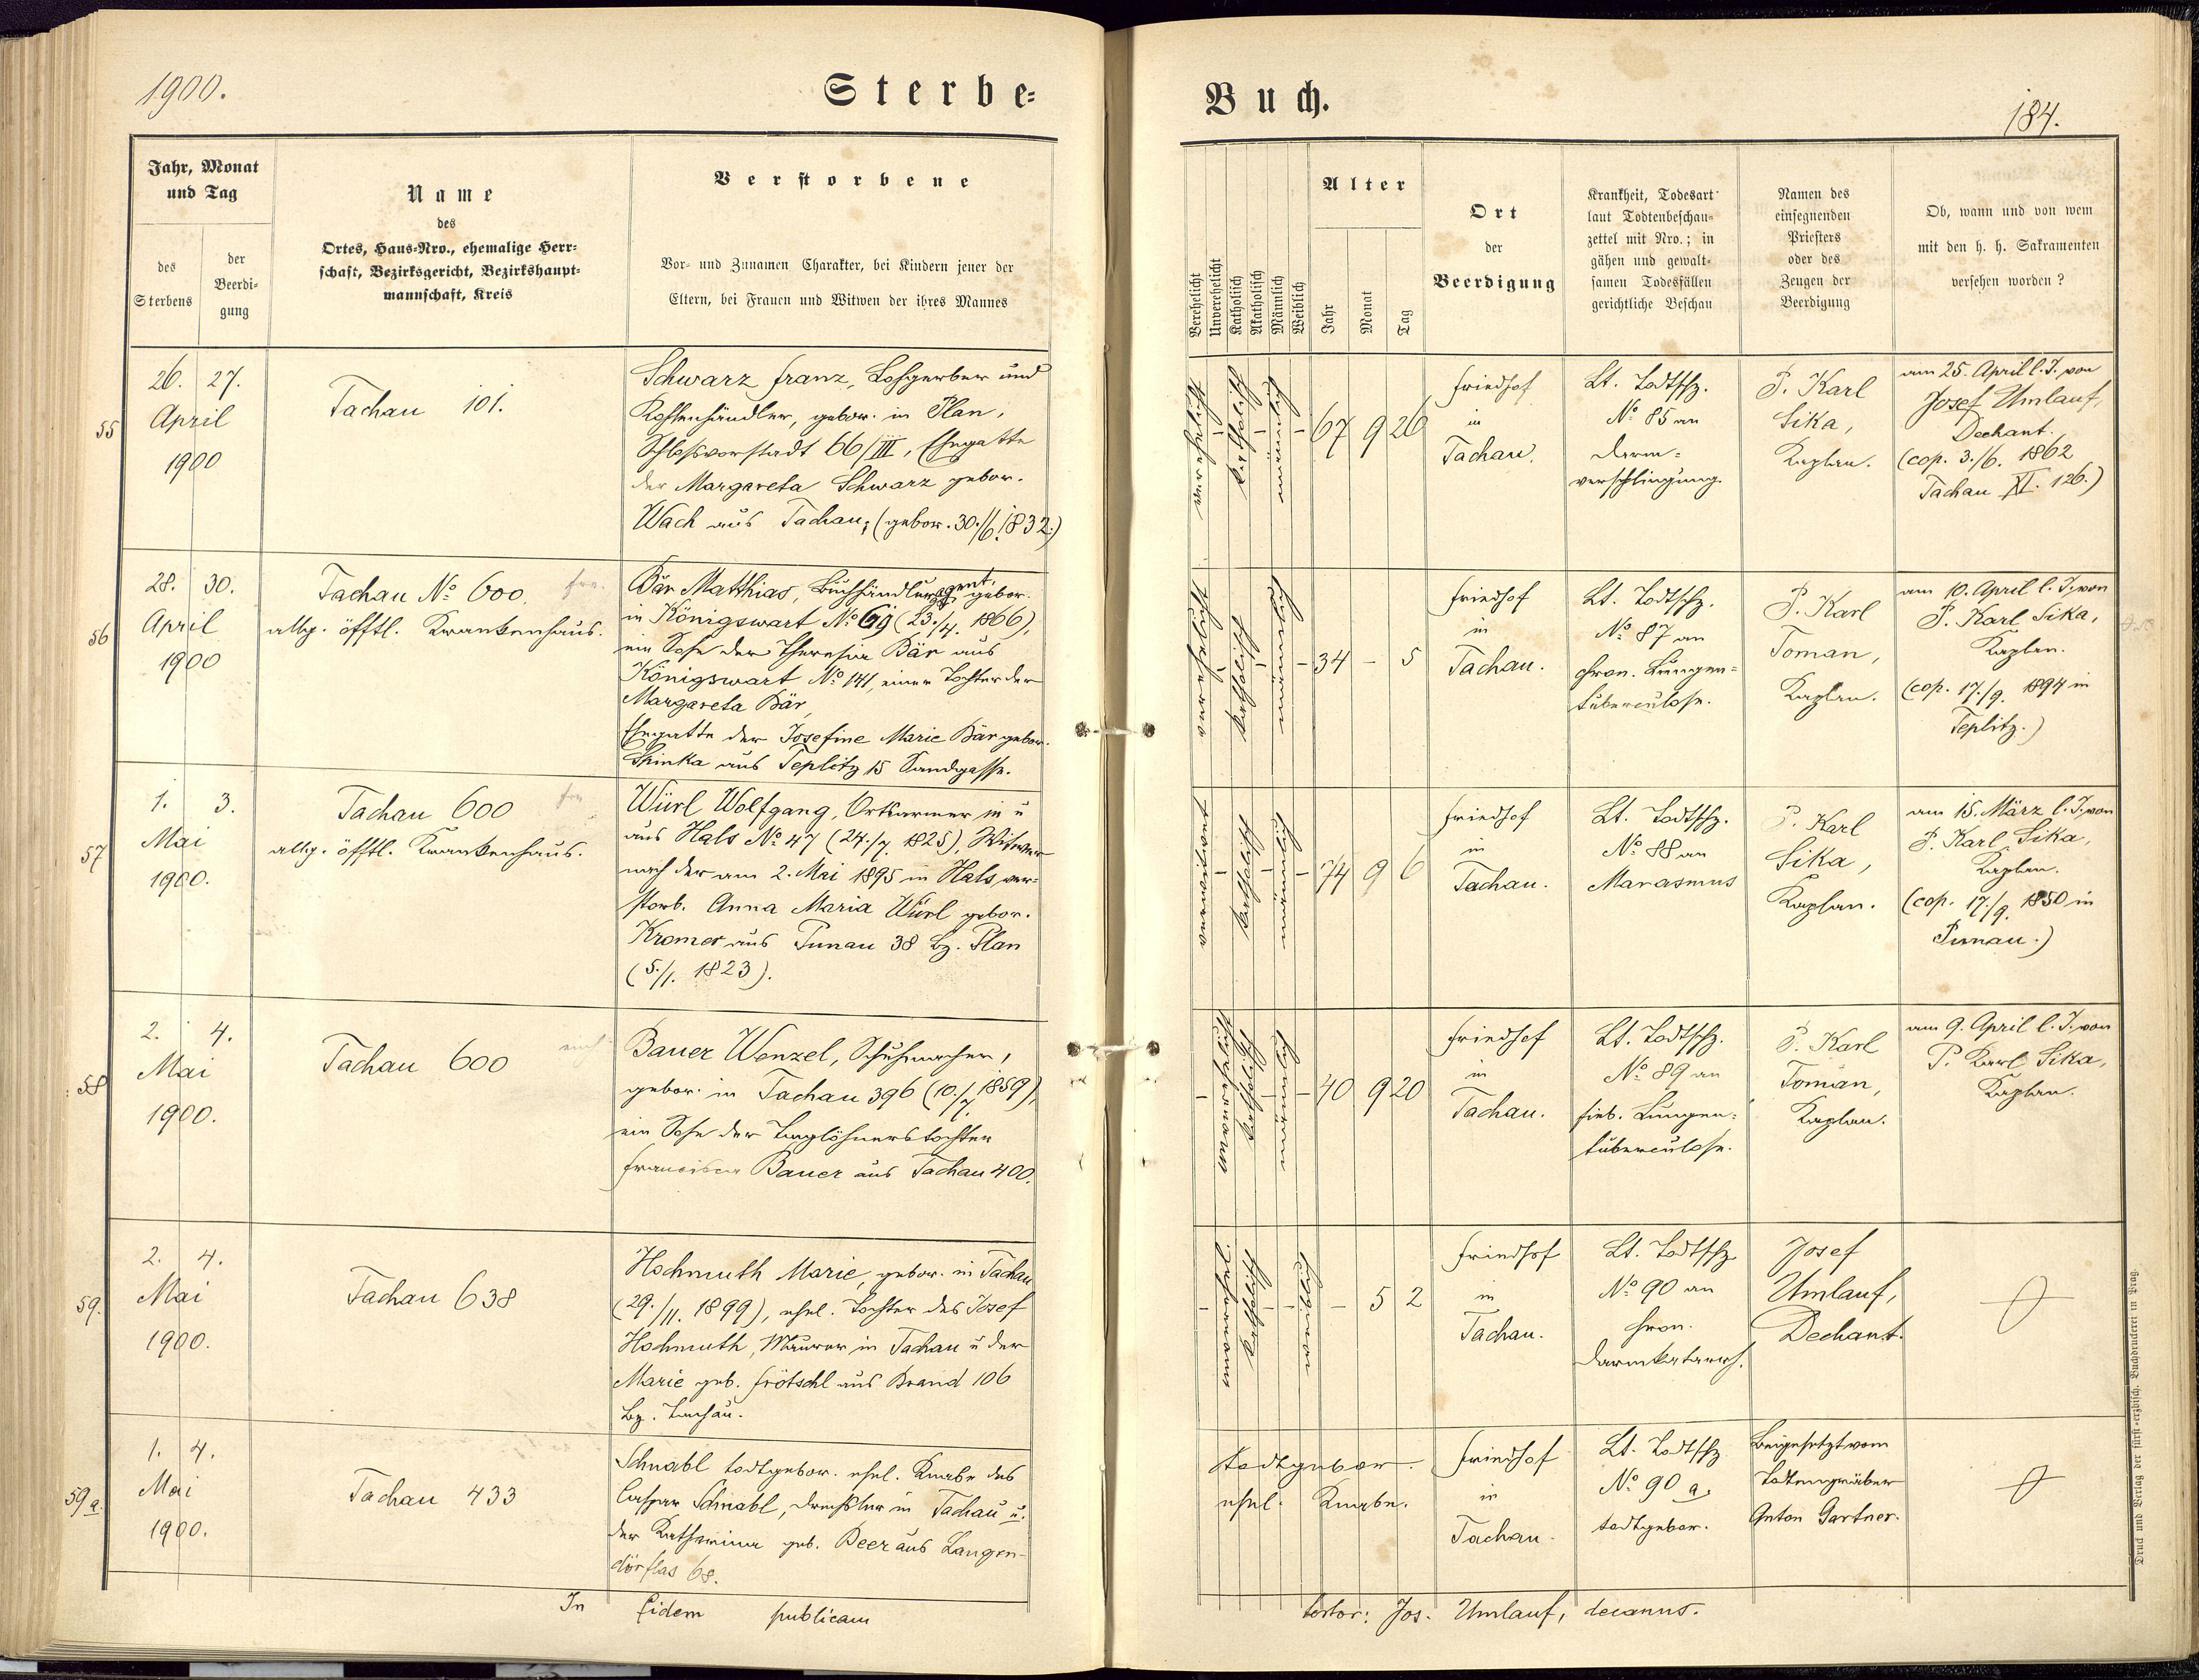 1900.
Sterbe-
Buch.
184.
Jahr, Monat
und Tag
des
Sterbens
der
Beerdi-
gung
Name
des
Ortes, Haus-Nro., ehemalige Herr-
schaft, Bezirksgericht, Bezirkshaupt-
mannschaft, Kreis
Verstorbene
Vor- und Zunamen Charakter, bei Kindern jener der
Eltern, bei Frauen und Witwen der ihres Mannes
Verehelicht
Unverehelicht
Katholisch
Akatholisch
Männlich
Weiblich
Alter
Jahr
Monat
Tag
Ort
der
Beerdigung
Krankheit, Todesart
laut Todtenbeschau-
zettel mit Nro.; in
gähen und gewalt-
samen Todesfällen
gerichtliche Beschau
Namen des
einsegnenden
Priesters
oder des
Zeugen der
Beerdigung
Ob, wann und von wem
mit den h. h. Sakramenten
versehen worden?
55
26. 27.
April
1900
Tachau 101.
Schwarz Franz, Lohgerber und
Kohlenhändler, gebor. in Plan,
Schloßvorstadt 66/III, Ehegatte
der Margareta Schwarz gebor.
Wach aus Tachau; (gebor. 30./6. 1832.)
verehelicht
-
katholisch
-
männlich
-
67 9 26
Friedhof
in
Tachau.
Lt. Todtschz.
№ 85 an
Darm-
verschlingung.
P. Karl
Sika,
Kaplan.
am 25. April l. J. von
Josef Umlauf,
Dechant.
(cop. 3./6. 1862
Tachau XI. 126.)
56
28. 30.
April
1900
Tachau № 600.
allg. öfftl. Krankenhaus.
Bär Matthias, Buchhandlungsagent, gebor.
in Königswart № 69 (23./4. 1866),
ein Sohn der Theresia Bär aus
Königswart № 141, einer Tochter der
Margareta Bär,
Ehegatte der Josefine Marie Bär gebor.
Shinka aus Teplitz 15 Sandgasse.
verehelicht
-
katholisch
-
männlich
-
34 - 5
Friedhof
in
Tachau.
Lt. Todtschz.
№ 87 an
chron. Lungen-
tuberculose.
P. Karl
Toman,
Kaplan.
am 10. April l. J. von
P. Karl Sika,
Kaplan.
(cop. 17./9. 1894 in
Teplitz.)
57
1. 3.
Mai
1900.
Tachau 600
allg. öfftl. Krankenhaus.
Würl Wolfgang, Ortsarmer in u
aus Hals № 47 (24./7. 1825), Witwer
nach der am 2. Mai 1895 in Hals ver-
storb. Anna Maria Würl gebor.
Kromer aus Punau 38 Bz. Plan
(5./1. 1823).
verwitwet
-
katholisch
-
männlich
-
74 9 6
Friedhof
in
Tachau.
Lt. Todtschz.
№ 88 an
Marasmus
P. Karl
Sika,
Kaplan.
am 15. März l. J. von
P. Karl Sika,
Kaplan.
(cop. 17./9. 1850 in
Punau.)
58
2. 4.
Mai
1900.
Tachau 600
Bauer Wenzel, Schuhmacher,
gebor. in Tachau 396 (10./7. 1859),
ein Sohn der Taglöhnerstochter
Francisca Bauer aus Tachau 400.
-
unverehelicht
katholisch
-
männlich
-
40 9 20
Friedhof
in
Tachau.
Lt. Todtschz.
№ 89 an
fieb. Lungen-
tuberculose.
P. Karl
Toman,
Kaplan.
am 9. April l. J. von
P. Karl Sika,
Kaplan.
59.
2. 4.
Mai
1900.
Tachau 638
Hochmuth Marie, gebor. in Tachau
(29./11. 1899), ehel. Tochter des Josef
Hochmuth, Maurer in Tachau u der
Marie geb. Frötschl aus Brand 106
Bz. Tachau.
-
katholisch
-
-
- 5 2
Friedhof
in
Tachau.
Lt. Todtschz.
№ 90 an
chron.
Darmkatarrh.
Josef
Umlauf,
Dechant.
59 a.
1. 4.
Mai
1900.
Tachau 433
Schnabl todtgebor. ehel. Knabe des
Caspar Schnabl, Drechsler in Tachau u.
der Katharina geb. Beer aus Langen-
dörflas 68.
todtgebor.
ehel. Knabe.
Friedhof
in
Tachau.
Lt. Todtschz.
№ 90 a.
todtgebor.
Beigesetzt vom
Todtengräber
Anton Gartner.
In fidem publicam
testor: Jos. Umlauf, decanus.
Druck und Verlag der fürst-erzbisch. Buchdruckerei in Prag.